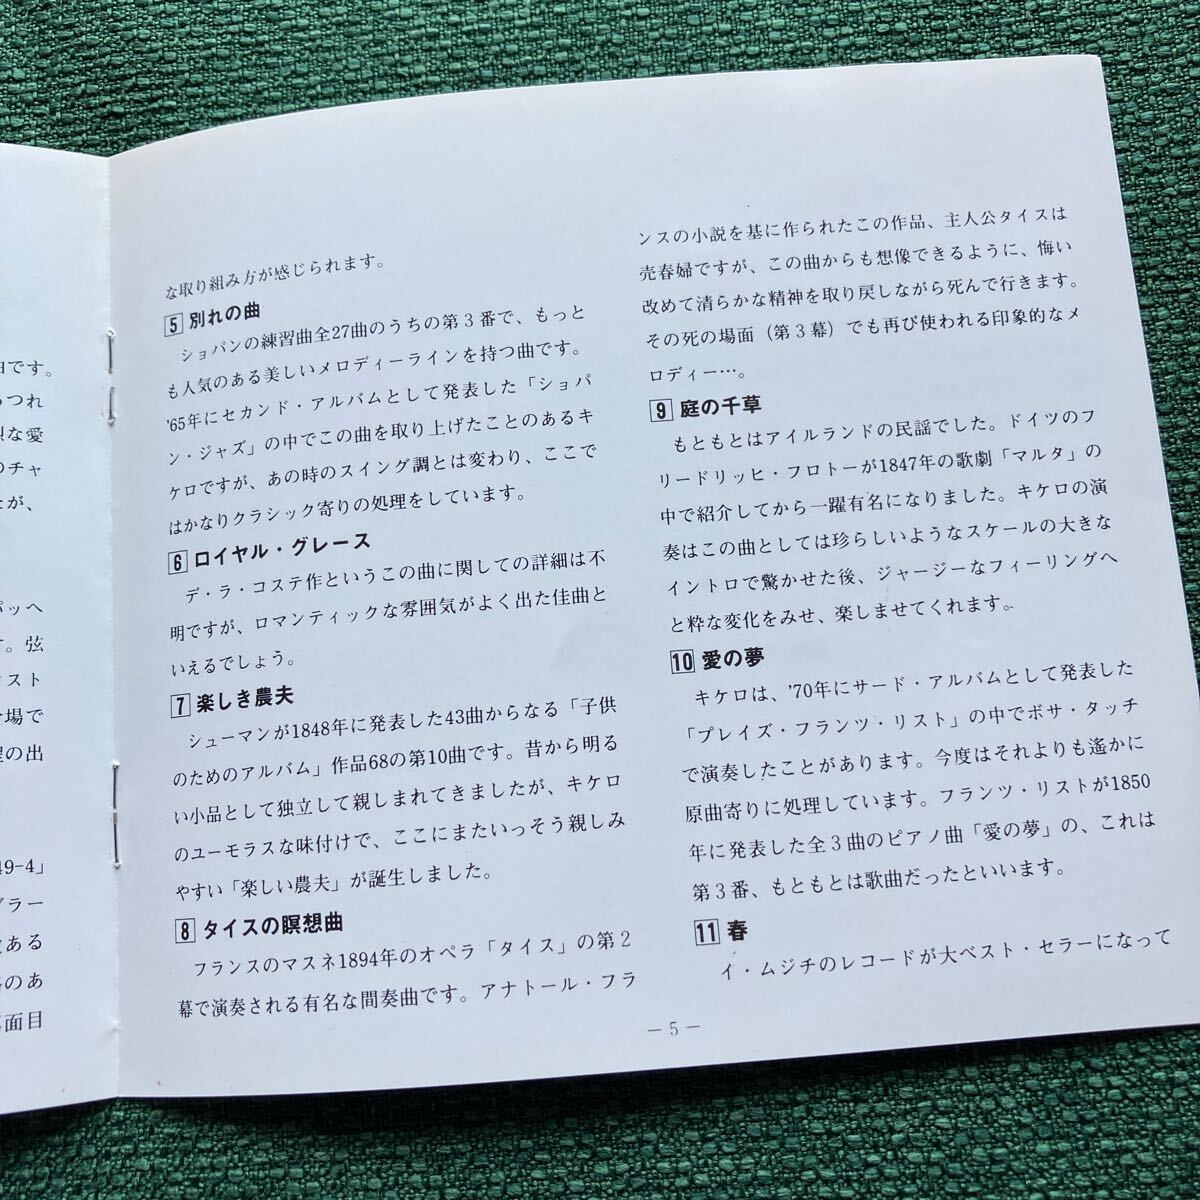 日です。
うつれ
烈な愛
のチャ
が、
パッヘ
す。弦
リスト
場で
の出
49-4」
グラー
ある
のあ
面目
な取り組み方が感じられます。
5 別れの曲
ショパンの練習曲全27曲のうちの第3番で、もっと
も人気のある美しいメロディーラインを持つ曲です。
'65年にセカンド・アルバムとして発表した「ショパ
ン・ジャズ」の中でこの曲を取り上げたことのあるキ
ケロですが、あの時のスイング調とは変わり、ここで
はかなりクラシック寄りの処理をしています。
6 ロイヤル・グレース
デ・ラ・コステ作というこの曲に関しての詳細は不
明ですが、ロマンティックな雰囲気がよく出た佳曲と
いえるでしょう。
7 楽しき農夫
シューマンが1848年に発表した43曲からなる「子供
のためのアルバム」作品68の第10曲です。昔から明る
い小品として独立して親しまれてきましたが、キケロ
のユーモラスな味付けで、ここにまたいっそう親しみ
やすい「楽しい農夫」が誕生しました。
8 タイスの瞑想曲
フランスのマスネ1894年のオペラ「タイス」の第2
幕で演奏される有名な間奏曲です。アナトール・フラ
ンスの小説を基に作られたこの作品、主人公タイスは
売春婦ですが、この曲からも想像できるように、悔い
改めて清らかな精神を取り戻しながら死んで行きます。
その死の場面（第3幕）でも再び使われる印象的なメ
ロディー…。
9 庭の千草
もともとはアイルランドの民謡でした。ドイツのフ
リードリッヒ・フロトーが1847年の歌劇「マルタ」の
中で紹介してから一躍有名になりました。キケロの演
奏はこの曲としては珍らしいようなスケールの大きな
イントロで驚かせた後、ジャージーなフィーリングへ
と粋な変化をみせ、楽しませてくれます。
10 愛の夢
キケロは、'70年にサード・アルバムとして発表した
「プレイズ・フランツ・リスト」の中でボサ・タッチ
で演奏したことがあります。今度はそれよりも遙かに
原曲寄りに処理しています。フランツ・リストが1850
年に発表した全3曲のピアノ曲「愛の夢」の、これは
第3番、もともとは歌曲だったといいます。
11 春
イ・ムジチのレコードが大ベスト・セラーになって
— 5 —